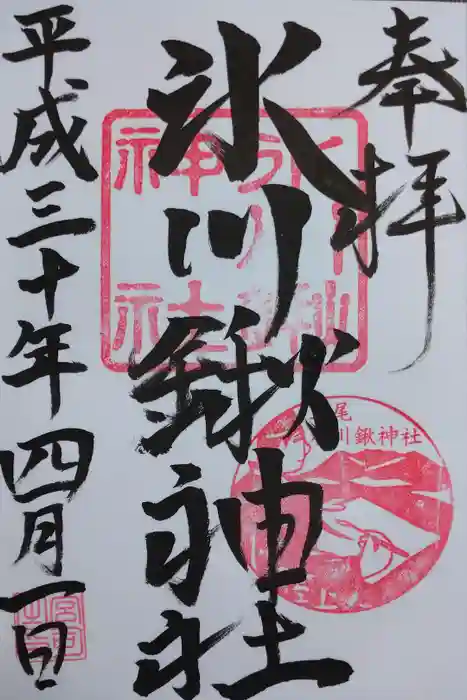 奉拝
氷川鍬神社
平成三十年四月一日
氷川鍬神社